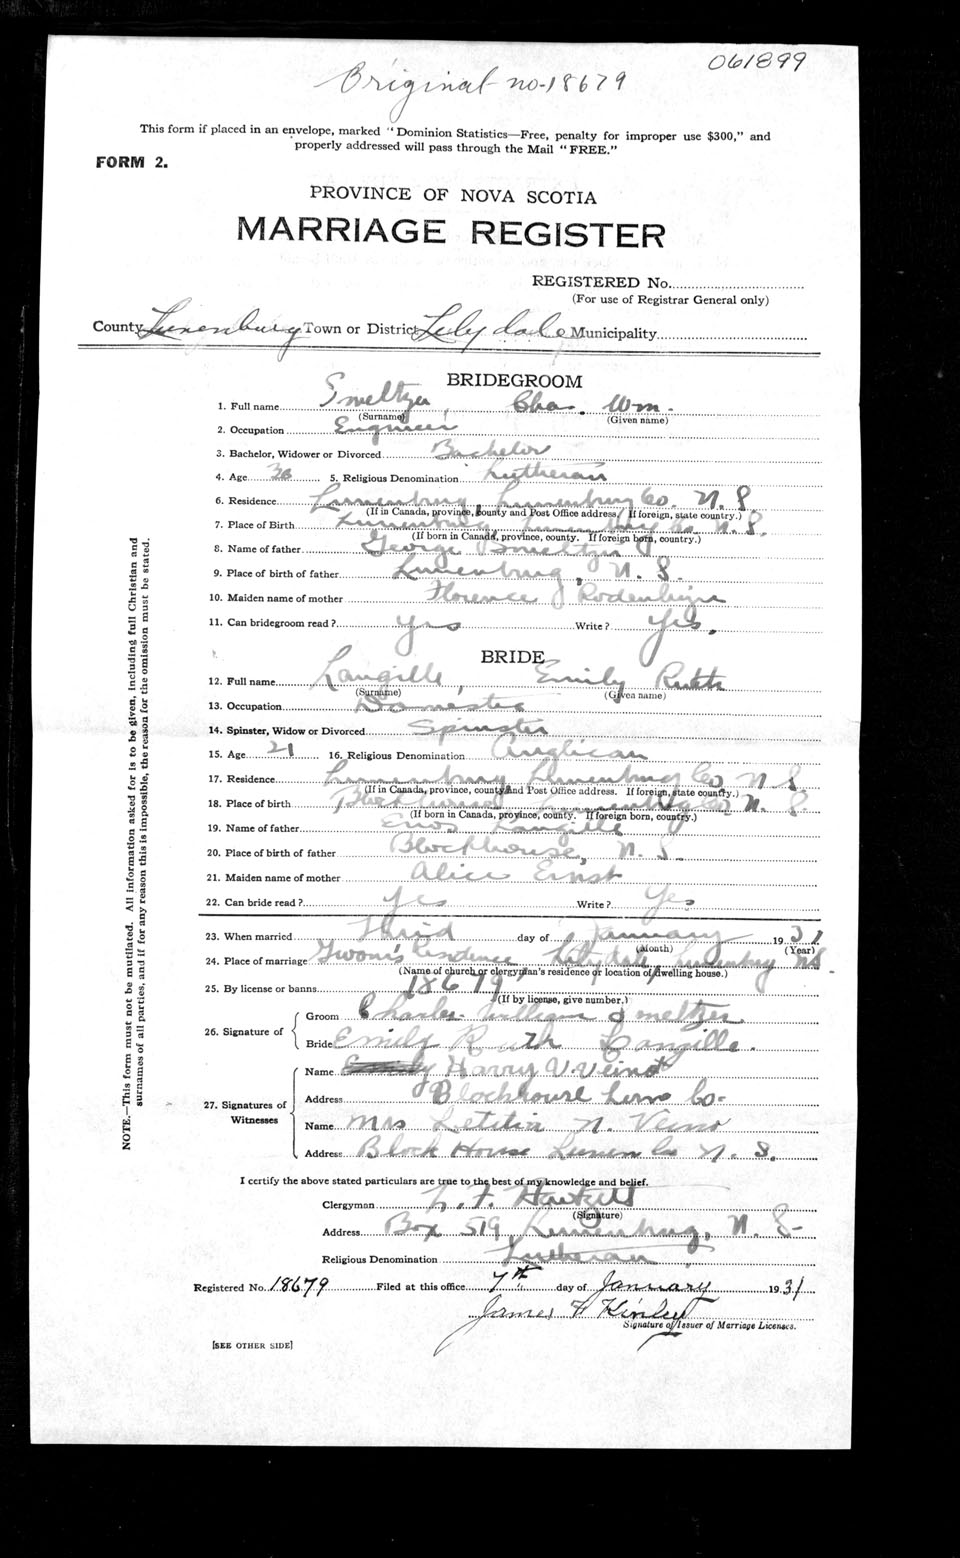 061899
Original no. 18679
This form if placed in an envelope, marked "Dominion Statistics—Free, penalty for improper use $300," and
properly addressed will pass through the Mail "FREE."
FORM 2.
PROVINCE OF NOVA SCOTIA
MARRIAGE REGISTER
REGISTERED No.
(For use of Registrar General only)
County Lunenburg Town or District Lilydale Municipality
BRIDEGROOM
1. Full name Smeltzer, Chas. Wm.
(Surname) (Given name)
2. Occupation Engineer
3. Bachelor, Widower or Divorced Bachelor
4. Age 5. Religious Denomination Lutheran
6. Residence Lunenburg, Lunenburg Co. N. S
(If in Canada, province, county and Post Office address. If foreign, state country.)
7. Place of Birth Lunenburg Lunenburg Co. N. S.
(If born in Canada, province, county. If foreign born, country.)
8. Name of father George Smeltzer
9. Place of birth of father Lunenburg, N. S.
10. Maiden name of mother Florence Rodenhizer
11. Can bridegroom read? yes Write? yes.
BRIDE
12. Full name Langille, Emily Ruth
(Surname) (Given name)
13. Occupation Domestic
14. Spinster, Widow or Divorced Spinster
15. Age 21 16. Religious Denomination Anglican
17. Residence Lunenburg Lunenburg Co N S
(If in Canada, province, county and Post Office address. If foreign, state country.)
18. Place of birth Blockhouse Lunenburg Co N. S.
(If born in Canada, province, county. If foreign born, country.)
19. Name of father Enos Langille
20. Place of birth of father Blockhouse, N. S.
21. Maiden name of mother Alice Ernst
22. Can bride read? Yes Write? Yes
23. When married Third day of January 1931
(Month) (Year)
24. Place of marriage Residence Lilydale Lunenburg NS
(Name of church or clergyman's residence or location of dwelling house.)
25. By license or banns 18679
(If by license, give number.)
26. Signature of Groom Charles William Smeltzer
Bride Emily Ruth Langille.
27. Signatures of Witnesses
Name Harry V. Veinot
Address Blockhouse Lunn Co-
Name Mrs Letitia N. Veino
Address Block House Lunen Co N. S.
I certify the above stated particulars are true to the best of my knowledge and belief.
Clergyman
(Signature)
Address Box 519, Lunenburg, N. S-
Religious Denomination Lutheran
Registered No. 18679 Filed at this office 7th day of January 1931
James F Kinley
Signature of Issuer of Marriage Licenses.
[SEE OTHER SIDE]
NOTE.—This form must not be mutilated. All information asked for is to be given, including full Christian and
surnames of all parties, and if for any reason this is impossible, the reason for the omission must be stated.